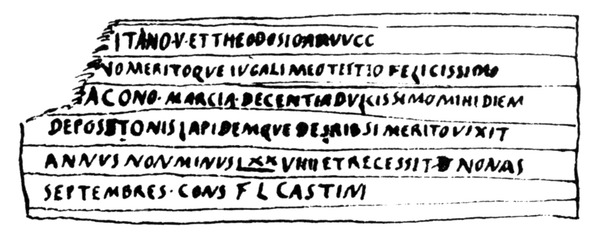 ITANO·V·ET THEODOSIO AVVCC
NO MERITOQVE IVGALI MEO TEITIO FELICISSIMO
ACONO· MARCIA·DECENTIA DVLCISSIMO MIHI DIEM
DEPOSITONIS LAPIDEMQVE DESRIBSI MERITO VIXIT
ANNVS NON MINVS LXX VIIII ET RECESSIT D NONAS
SEPTEMBRES· CONS F L CASTINI